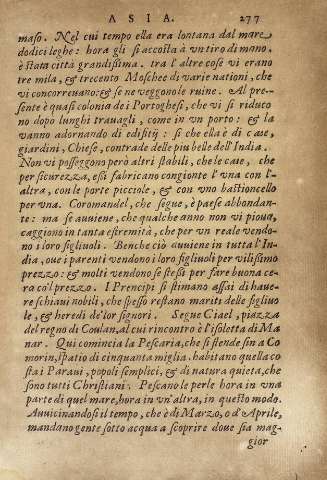 ASIA. 277
maso. Nel cui tempo ella era lontana dal mare
dodici leghe: hora gli si accosta à vn tiro di mano.
è stata città grandissima. tra l'altre cose vi erano
tre mila, & trecento Moschee di varie nationi, che
vi concorreuano: & se ne veggono le ruine. Al pre-
sente è quasi colonia de i Portoghesi, che vi si riduco
no dopo lunghi trauagli, come in vn porto: & la
vanno adornando di edifitij: si che ella è di case,
giardini, Chiese, contrade delle piu belle dell'India.
Non vi posseggono però altri stabili, che le case, che
per sicurezza, essi fabricano congionte l'vna con l'al-
altra, con le porte picciole, & con vno bastioncello
per vna. Coromandel, che segue, è paese abbondan-
te: ma se auuiene, che qualche anno non vi pioua,
caggiono in tanta estremità, che per vn reale vendo-
no i loro figliuoli. Benche ciò auuiene in tutta l'In-
dia, oue i parenti vendono i lor figliuoli per vilissimo
prezzo: & molti vendono se stessi per fare buona ce-
ra col prezzo. I Prencipi si stimano assai di haue-
re schiaui nobili, che spesso restano mariti delle figliuo
le, & heredi de'lor signori. Segue Ciael, piazza
del regno di Coulan, al cui rincontro è l'isoletta di Ma
nar. Qui comincia la Pescaria, che si stende sin a Co
morin, spatio di cinquanta miglia. habitano quella co
sta i Paraui, popoli semplici, & di natura quieta, che
sono tutti Christiani. Pescano le perle hora in vna
parte di quel mare, hora in vn'altra, in questo modo.
Auuicinandosi il tempo, che è di Marzo, o d'Aprile,
mandano gente sotto acqua a scoprire doue sia mag-
gior